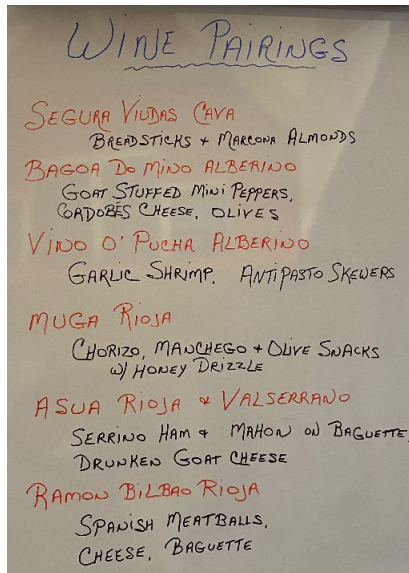 WINE PAIRINGS
SEGURA VIUDAS CAVA
BREADSTICKS + MARCONA ALMONDS
BAGOA DO MINO ALBERINO
GOAT STUFFED MINI PEPPERS,
CORDOBÉS CHEESE, OLIVES
VINO O' PUCHA ALBERINO
GARLIC SHRIMP, ANTIPASTO SKEWERS
MUGA RIOJA
CHORIZO, MANCHEGO + OLIVE SNACKS
W/ HONEY DRIZZLE
ASUA RIOJA & VALSERRANO
SERRINO HAM + MAHON ON BAGUETTE,
DRUNKEN GOAT CHEESE
RAMON BILBAO RIOJA
SPANISH MEATBALLS,
CHEESE, BAGUETTE